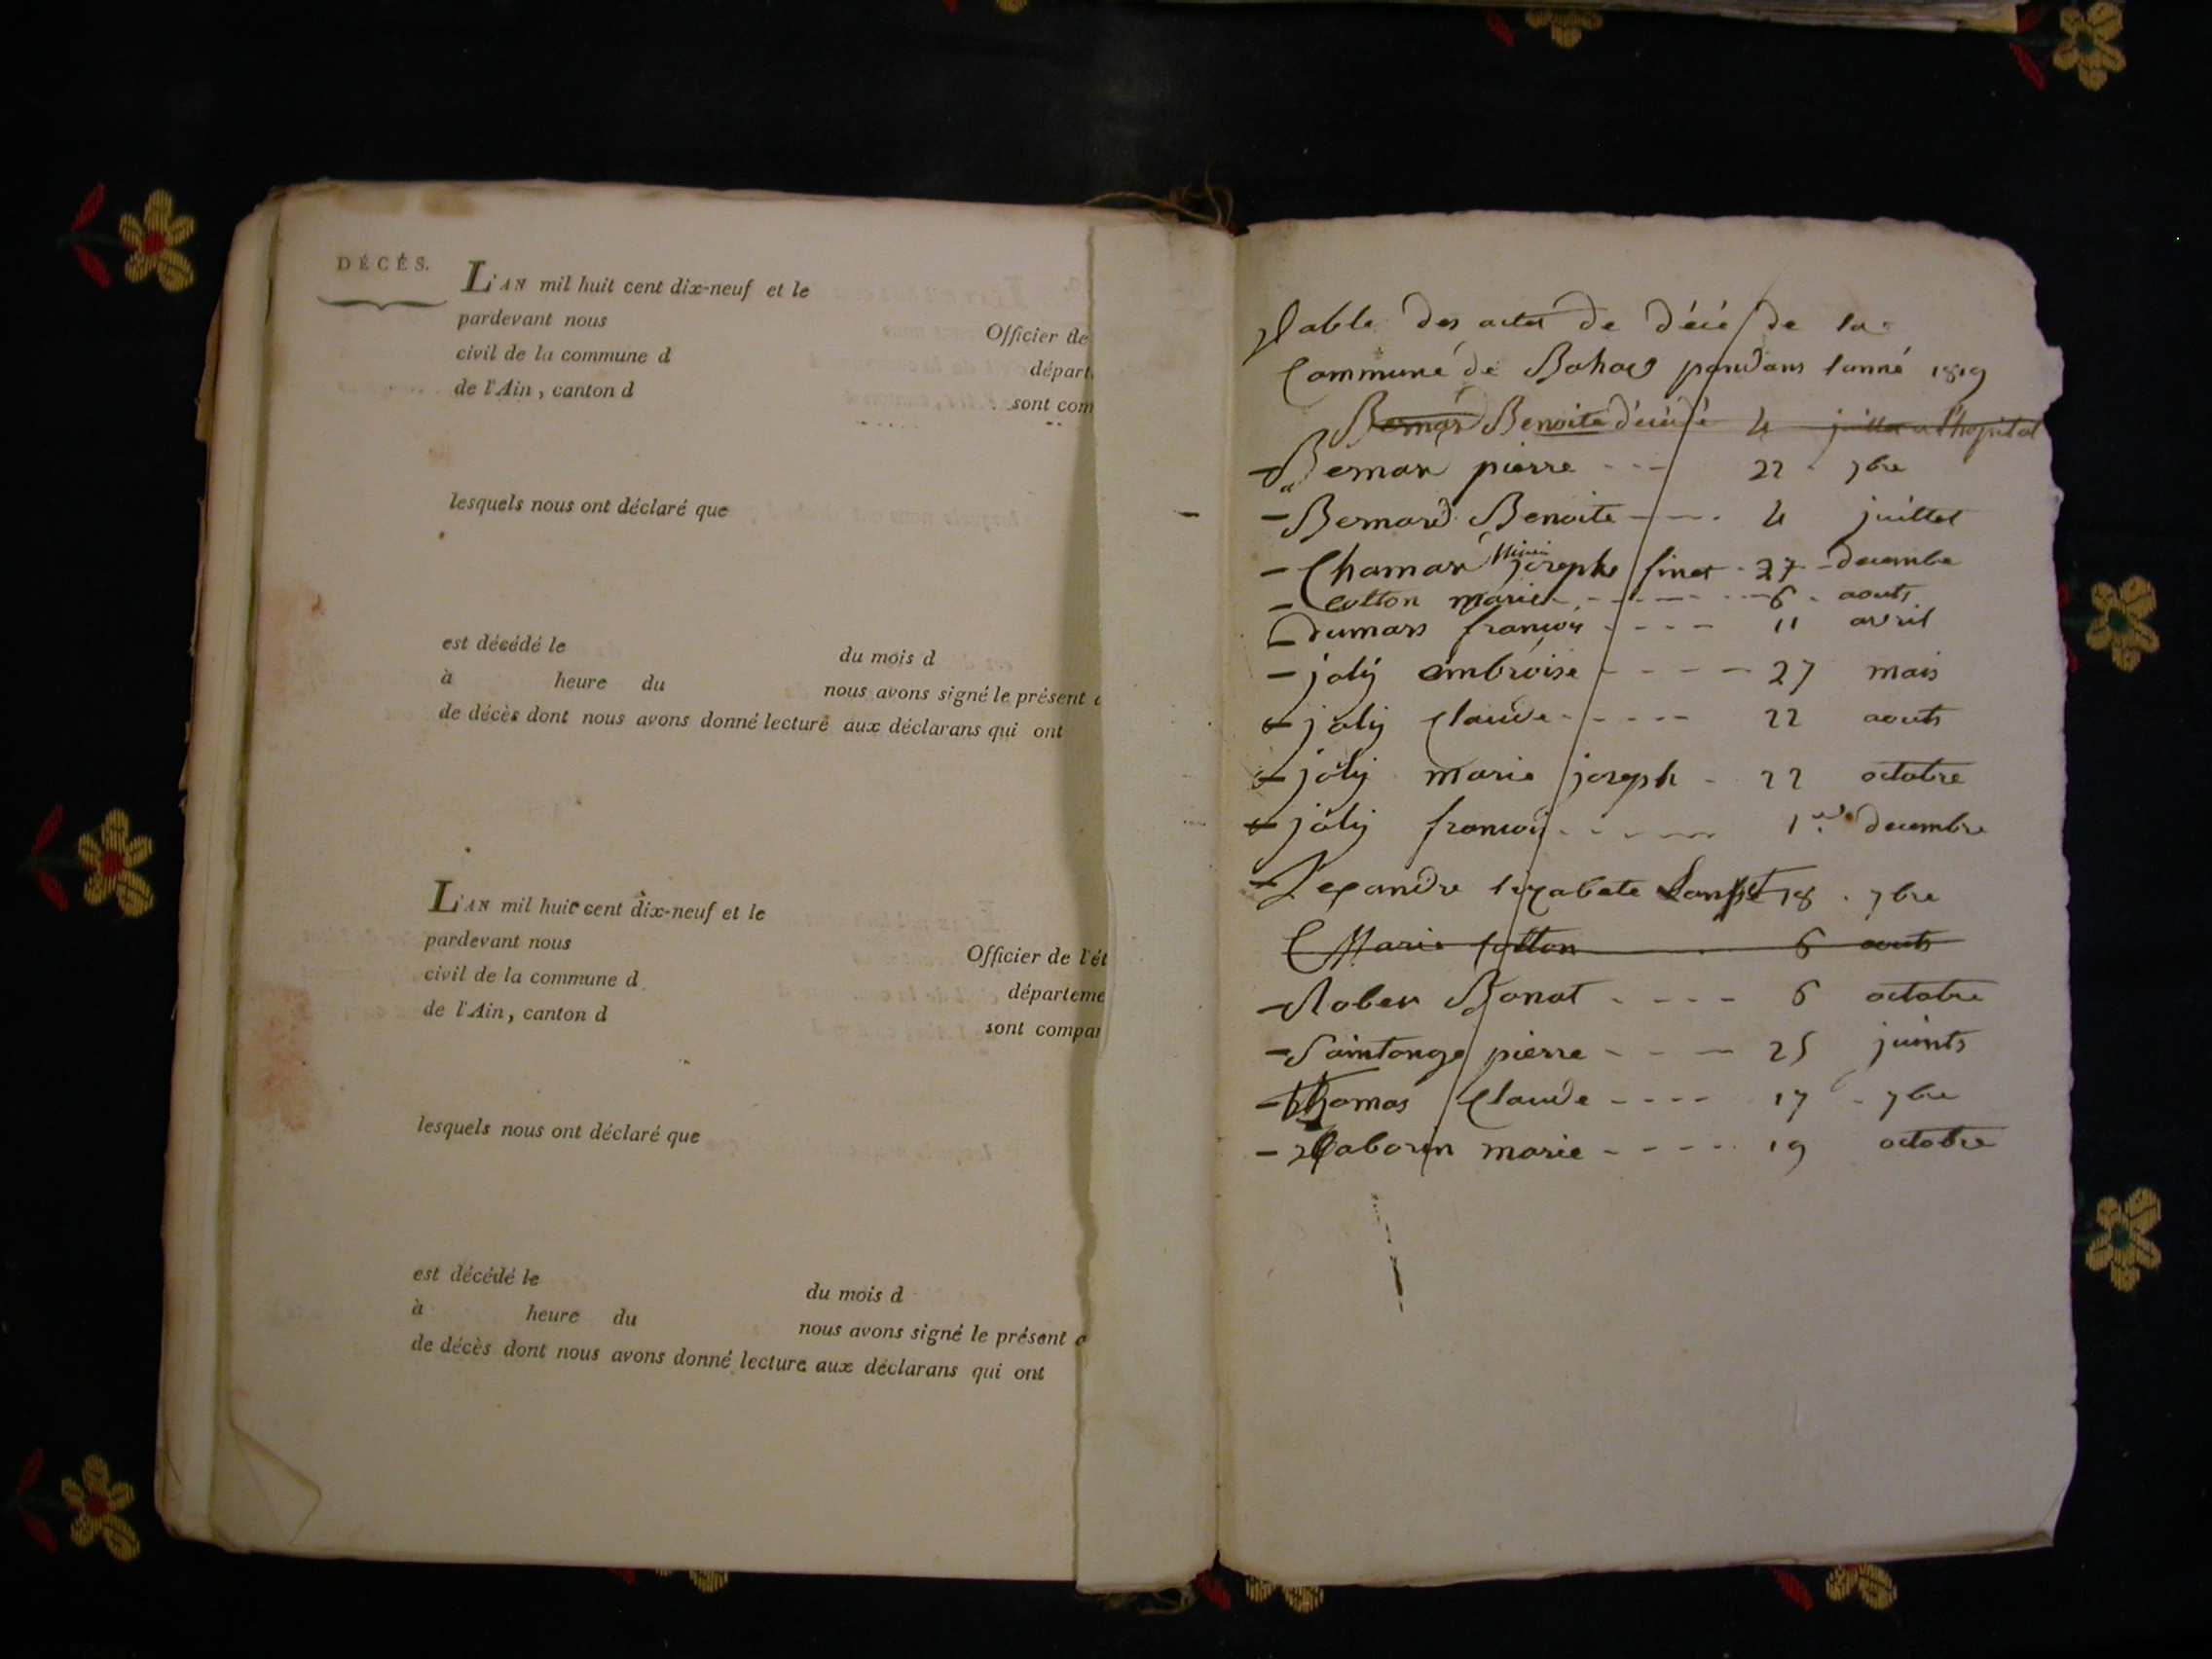 DÉCÉS.
L'AN mil huit cent dix-neuf et le
pardevant nous Officier de
civil de la commune d départ
de l'Ain, canton d sont com
lesquels nous ont déclaré que
est décédé le du mois d
à heure du nous avons signé le présent a
de décès dont nous avons donné lecture aux déclarans qui ont
L'AN mil huit cent dix-neuf et le
pardevant nous Officier de l'ét
civil de la commune d départeme
de l'Ain, canton d sont compar
lesquels nous ont déclaré que
est décédé le du mois d
à heure du nous avons signé le présent a
de décès dont nous avons donné lecture aux déclarans qui ont
Table des actes de décé de la
Commune de Bohas pandans lanné 1819
Bernar Benoite décédé 4 juillet a l'hopital
Bernar pierre 22 7bre
Bernard Benoite 4 juillet
Chamar josephe finet 27 decembe
Cotton marie 6 aouts
dumars francois 11 avril
joly ambroise 27 mais
joly Claude 22 aouts
joly marie joseph 22 octobre
joly francois 1er decembre
Lexandre lizabete 18 7bre
Marie Cotton 6 aouts
Rober Bonat 6 octobre
Saintonge pierre 25 juints
thomas Claude 17 7bre
taborin marie 19 octobre